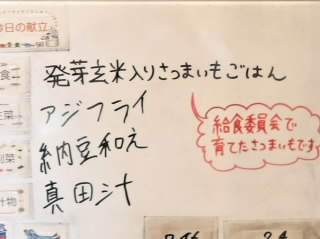 今日の献立
発芽玄米入りさつまいもごはん
アジフライ
納豆和え
真田汁
給食委員会で
育てたさつまいもです